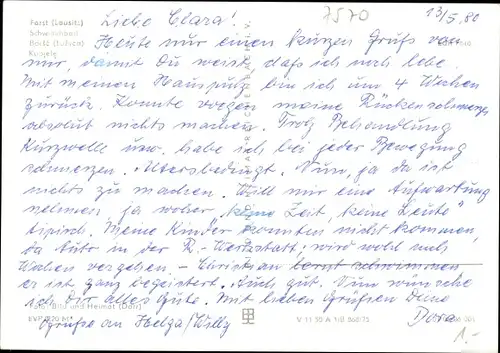 Forst (Lausitz)
Schwimmbad
7570
13/5.80
Liebe Clara!
Heute nur einen kurzen Gruß von
mir, damit Du weißt, daß ich noch lebe.
Mit meinen Hausputz bin ich um 4 Wochen
zurück. Konnte wegen meine Rückenschmerzen
absolut nichts machen. Trotz Behandlung
Kurzwelle usw. habe ich bei jeder Bewegung
schmerzen. Altersbedingt. Nun, ja da ist
nichts zu machen. Will mir eine Aufwartung
nehmen, ja woher, keine Zeit, keine Leute
tipisch. Meine Kinder konnten nicht kommen,
da Auto in der R.-Werkstatt, wird wohl noch
Wochen vergehen. – Christian lernt schwimmen
er ist ganz begeistert. Auch gut. Nun wünsche
ich Dir alles Gute. Mit lieben Grüßen Deine
Dora
Grüße an Helga/Willy
Bild und Heimat
V 11 50 A 1/B
1.-